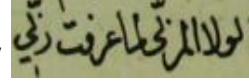 لولا المربّي لما عرفت ربّي